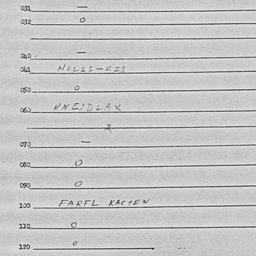 031 —
032 0
040 —
041
050 0
060 KNEJDLAX
070 —
080 0
090 0
100 FARFL KACTEN
110 0
120 0